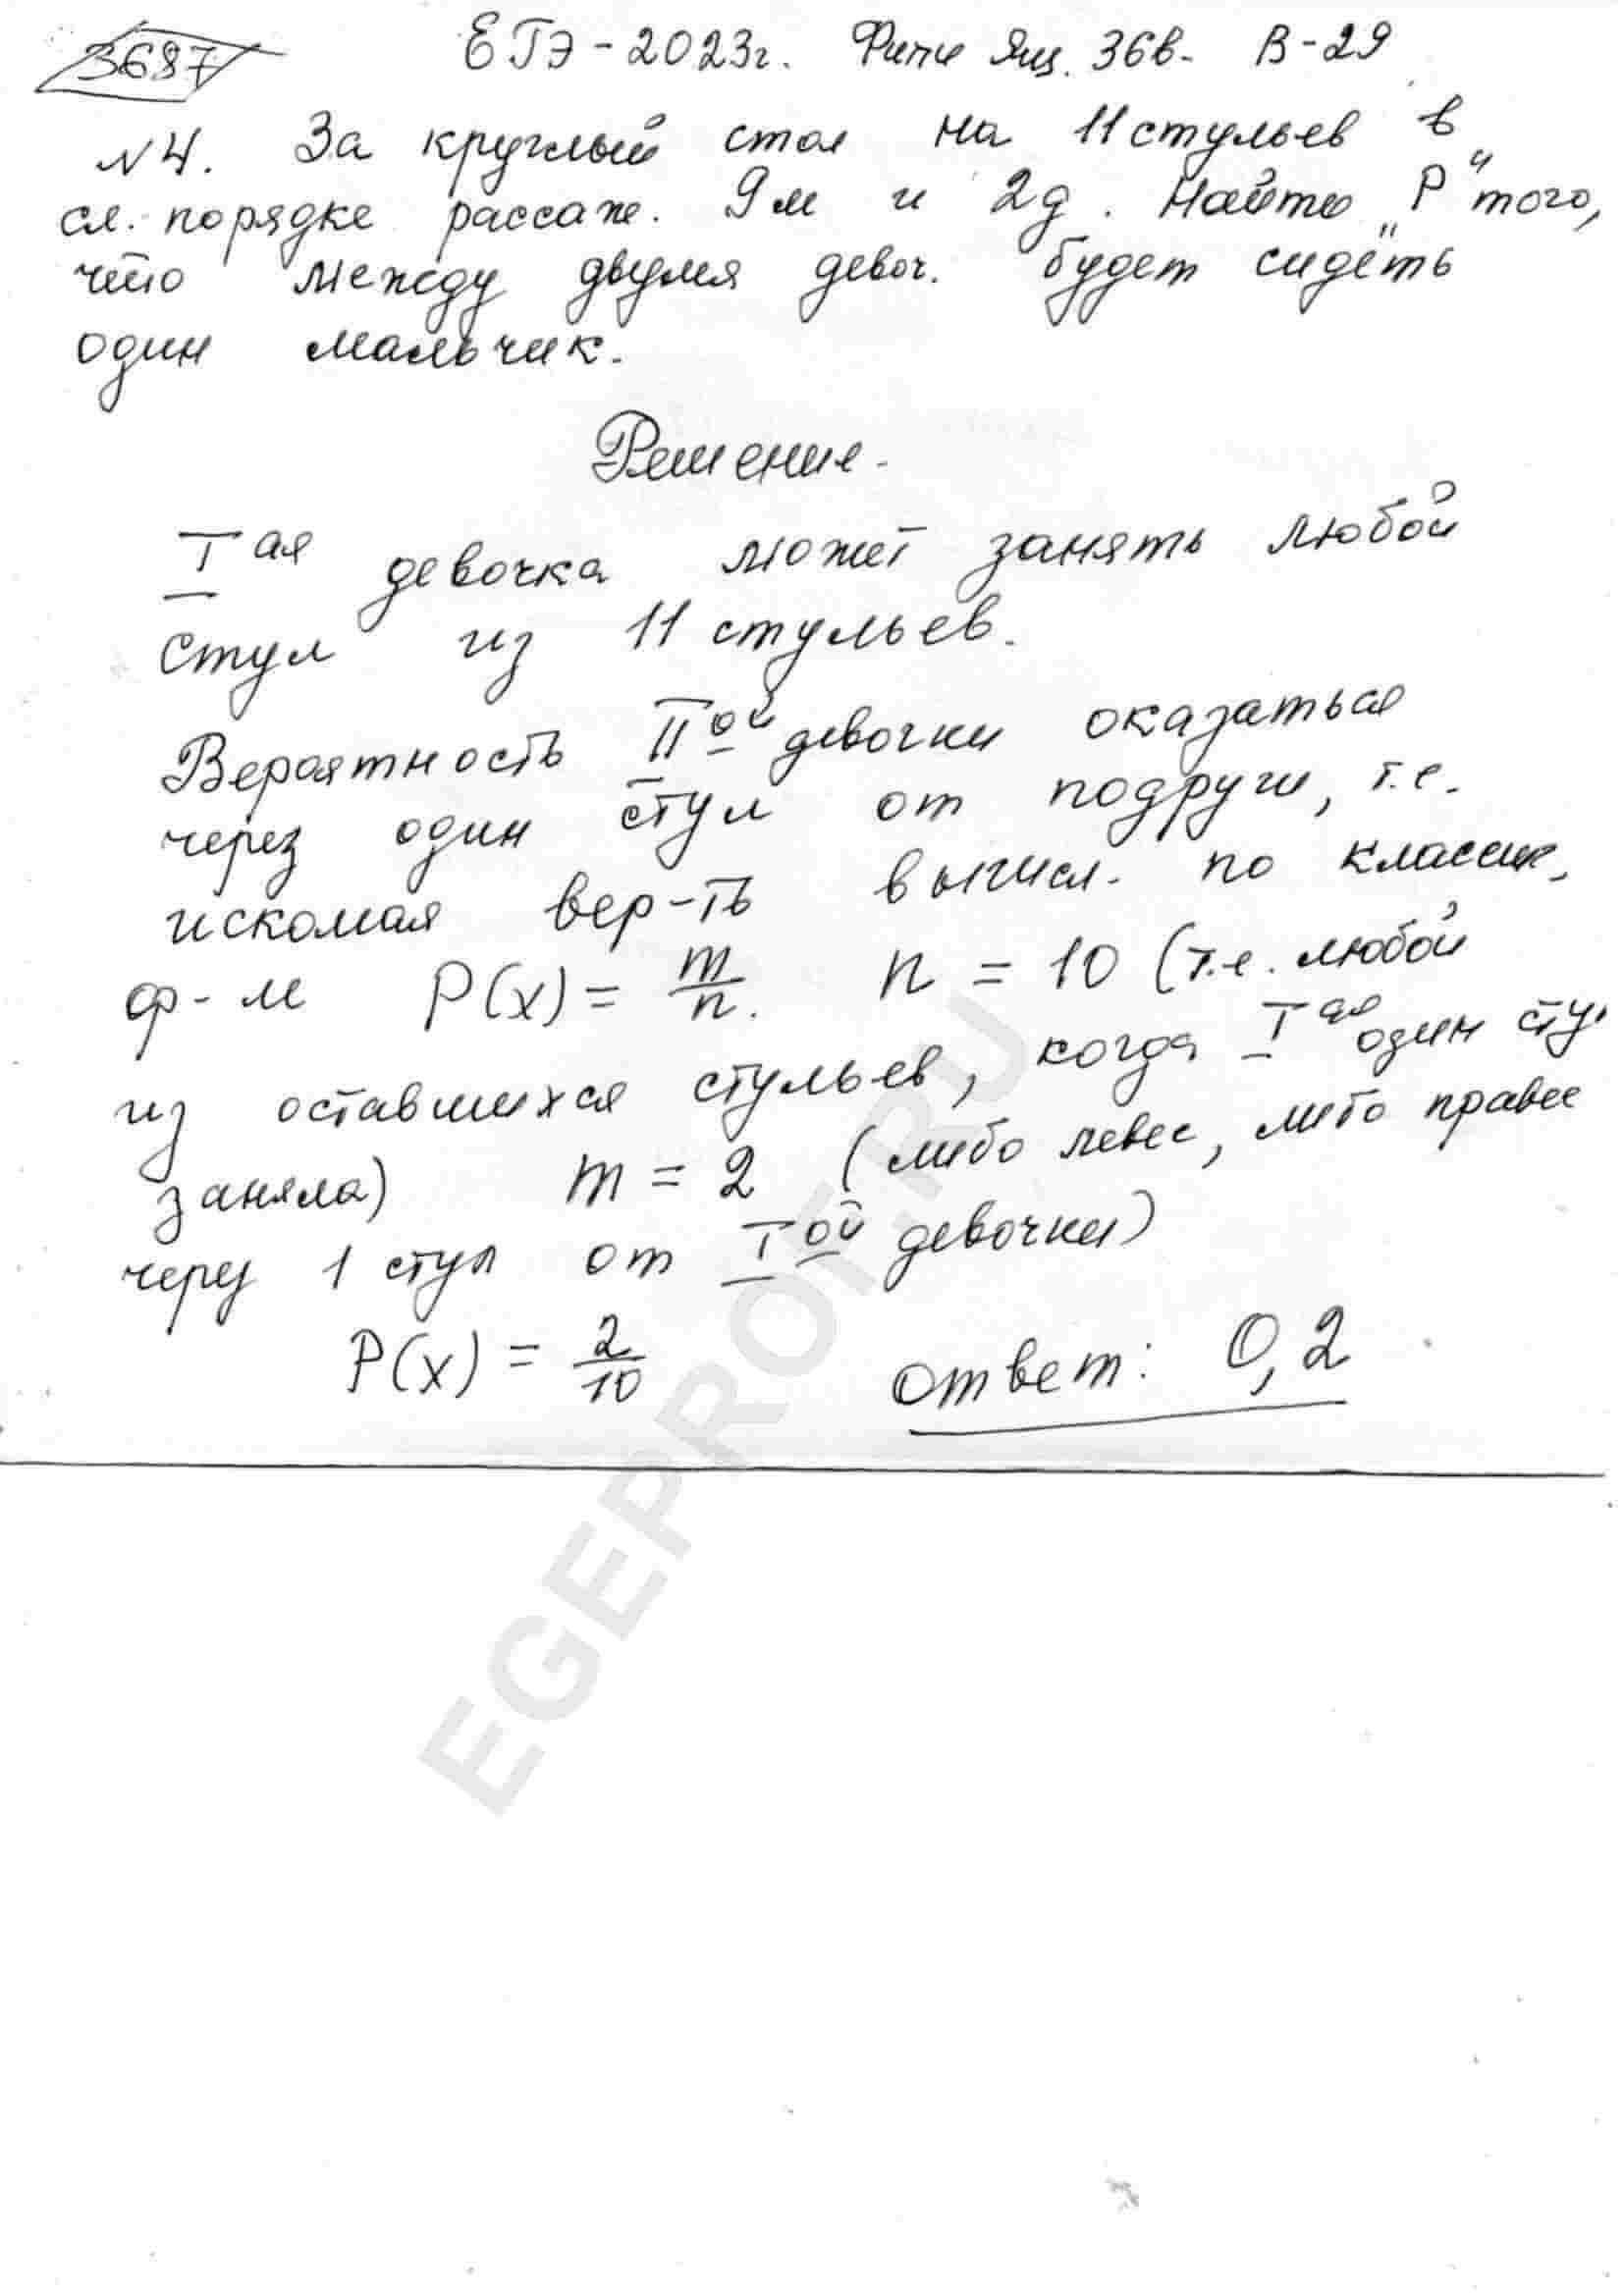 3687
ЕГЭ-2023г. Фипи Ящ. 36в. В-29
№4. За круглый стол на 11 стульев в
сл. порядке рассаж. 9м и 2д. Найти "Р" того,
что между двумя девоч. будет сидеть
один мальчик.
Решение.
I ая девочка может занять любой
стул из 11 стульев.
Вероятность II ой девочки оказаться
через один стул от подруги, т.е.
искомая вер-ть вычисл. по классич.
ф-м P(x) = m/n. n = 10 (т.е. любой
из оставшихся стульев, когда I ая один сту
заняла) m = 2 (либо левее, либо правее
через 1 стул от I ой девочки)
P(x) = 2/10 ответ: 0,2
EGEPROF.RU